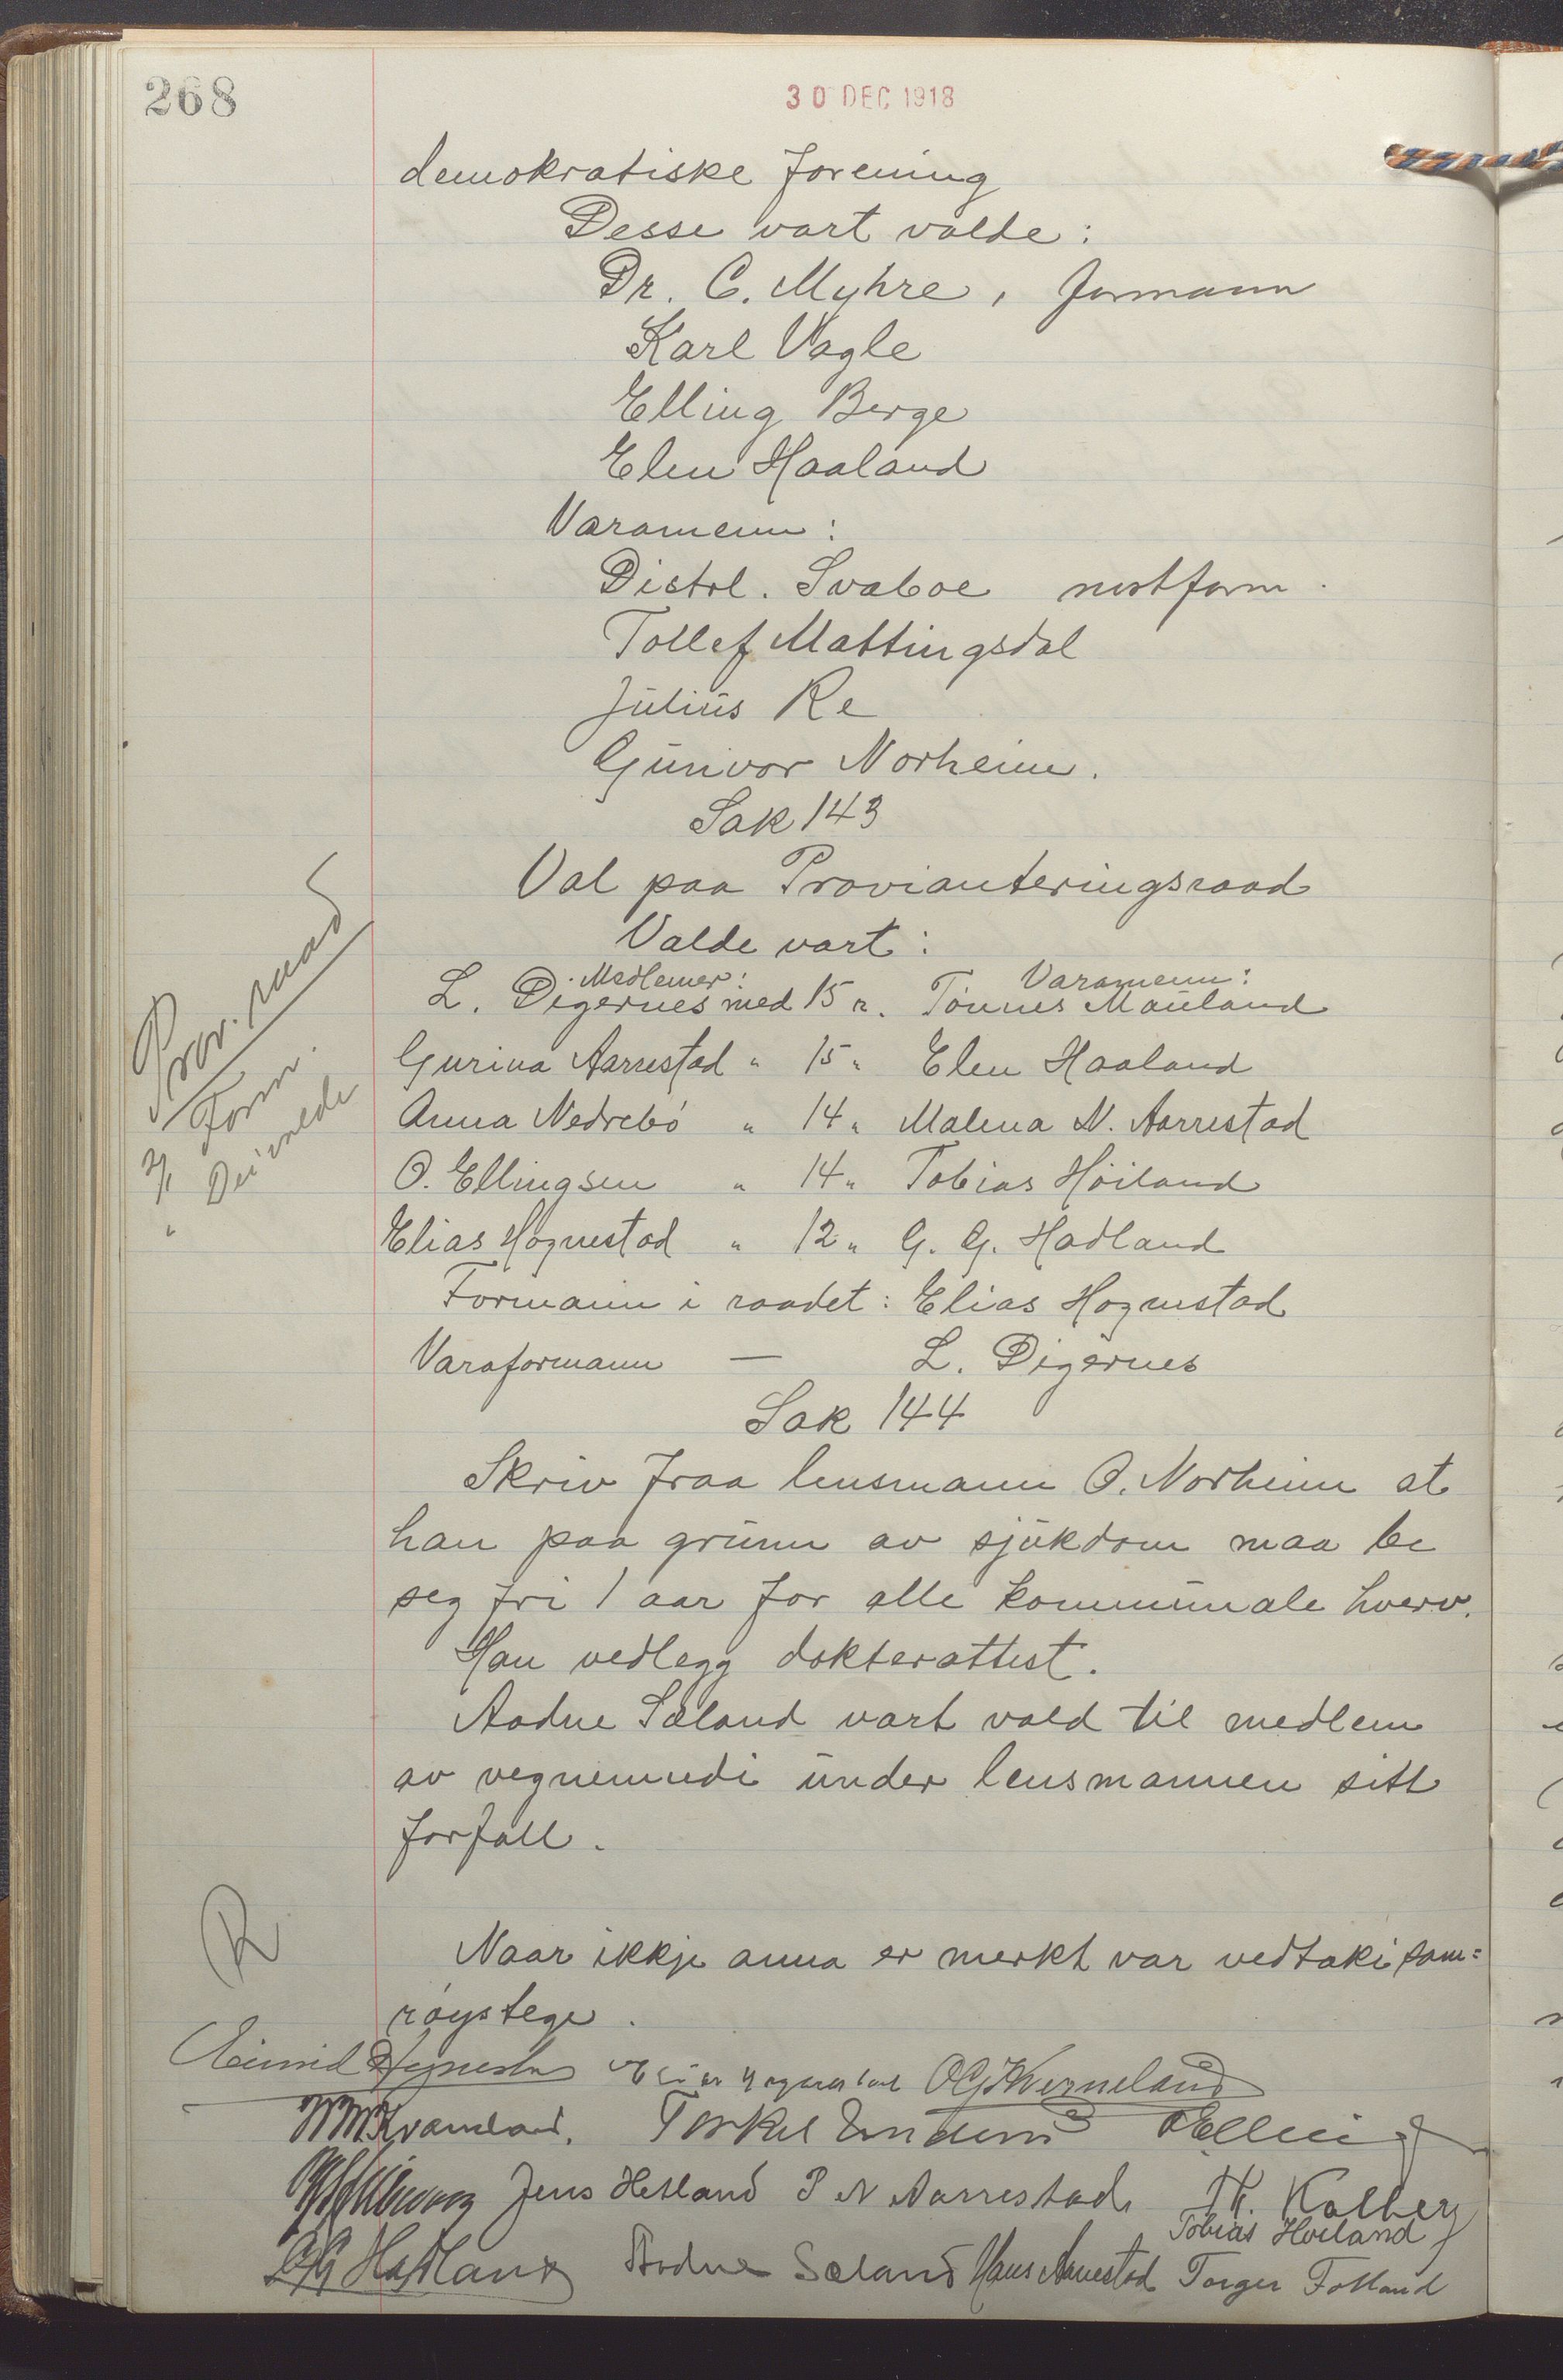 268
30 DEC 1918
demokratiske forening
Desse vart valde:
Dr. C. Myhre, formann
Karl Vagle
Elling Berge
Elen Haaland
Varamenn:
Distrl. Svaboe nestform.
Tollef Mattingsdal
Julius Re
Gunvor Norheim.
Sak 143
Val paa Provianteringsraad
Valde vart:
Medlemer: Varamenn:
L. Digernes med 15 r. Tønnes Mauland
Gurina Aarrestad " 15 " Elen Haaland
Anna Nedrebö " 14 " Malena N. Aarrestad
O. Ellingsen " 14 " Tobias Höiland
Elias Hognestad " 12 " G. G. Hadland
Formann i raadet: Elias Hognestad
Varaformann — L. Digernes
Prov. raad
Form.
Dei valde
Sak 144
Skriv fraa lensmann O. Norheim at
han paa grunn av sjukdom maa be
seg fri 1 aar for alle kommunale hverv.
Han vedlegg dokterattest.
Aadne Sæland vart vald til medlem
av vegnemndi under lensmannen sitt
forfall.
R
Naar ikkje anna er merkt var vedtaki sam=
røystege.
Eimid Hognestad Elias Hognestad O G Kverneland
Kvameland. Torkel
Jens Hetland P N Aarrestad Th. Kalberg
Tobias Høiland
G G Hadland Aadne Sæland Hans Aarrestad Torger Fotland